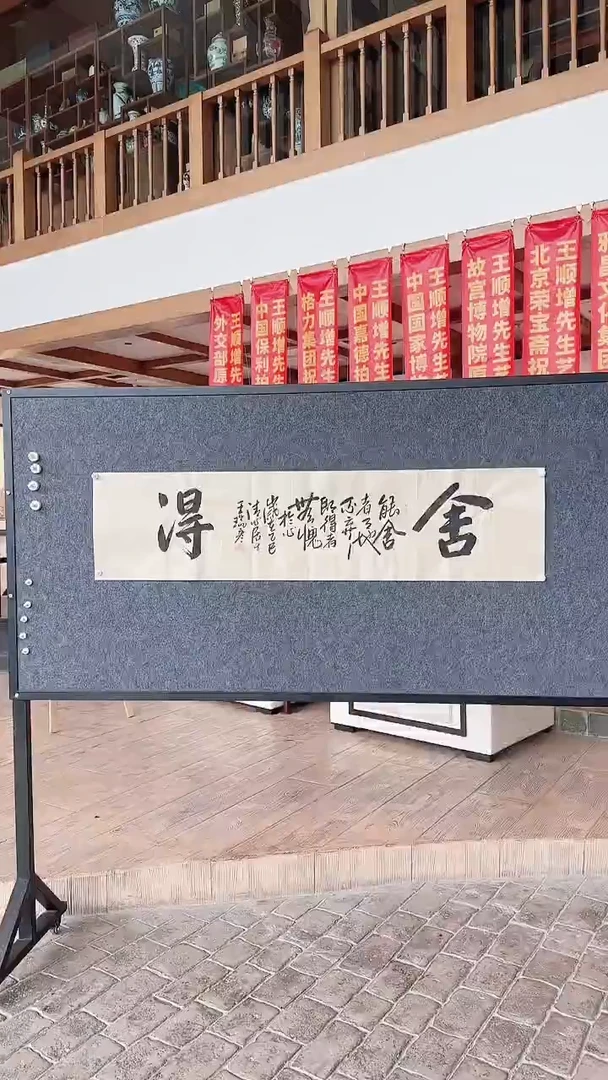 王顺增先
外交部原
王顺增先生
中国保利拍
王顺增先生
格力集团祝
王顺增先生
中国嘉德拍
王顺增先生艺
中国国家博
王顺增先生艺
故宫博物院原
王顺增先生艺
北京荣宝斋祝
舍
能舍
即得者
無愧
於心
得